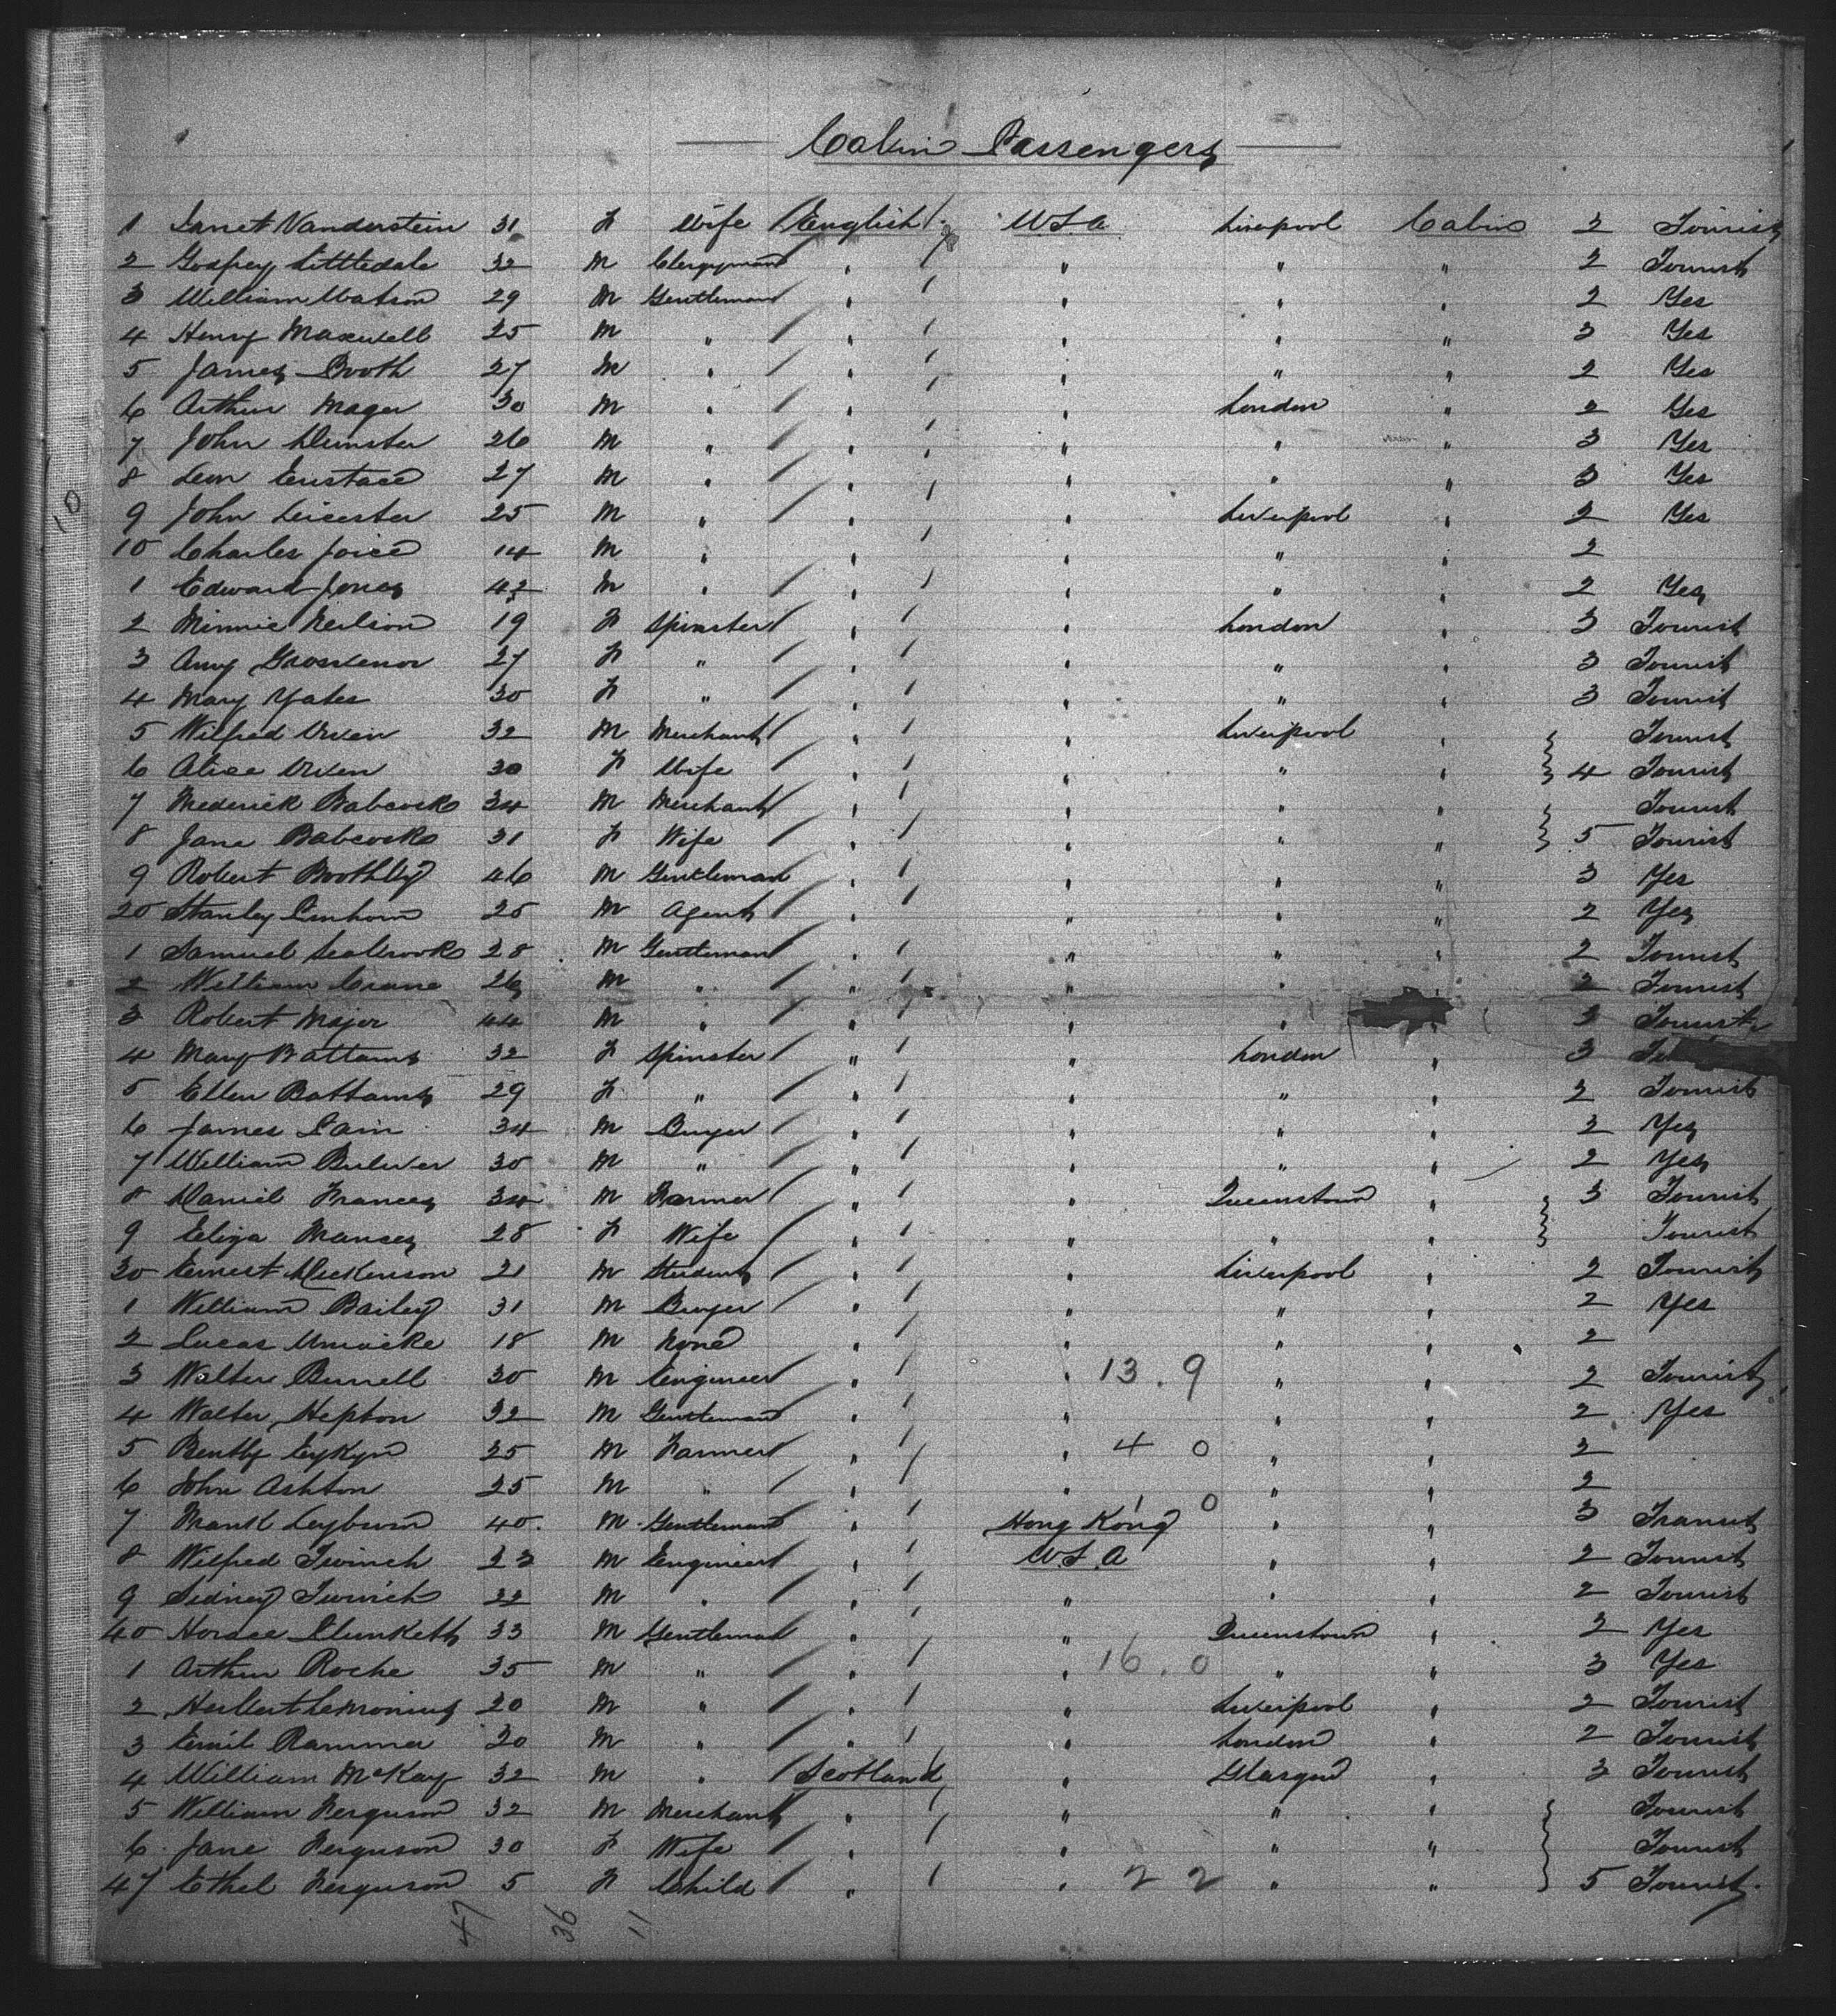 Cabin Passengers
1 Janet Vanderstein 31 F Wife English U.S.A. Liverpool Cabin 2 Tourist
2 Godfrey Littledale 32 M Clergyman " " " " 2 Tourist
3 William Watson 29 M Gentleman " " " " 2 Yes
4 Henry Maxwell 25 M " " " " " 3 Yes
5 James Booth 27 M " " " " " 2 Yes
6 Arthur Mager 30 M " " " London " 2 Yes
7 John Dunster 26 M " " " " " 3 Yes
8 Leon Eustace 27 M " " " " " 3 Yes
9 John Leicester 25 M " " " Liverpool " 2 Yes
10 Charles Joice 14 M " " " " 2
1 Edward Jones 42 M " " " " " 2 Yes
2 Minnie Neilson 19 F Spinster " " London " 3 Tourist
3 Amy Grosvenor 27 F " " " " " 3 Tourist
4 Mary Yates 30 F " " " " " 3 Tourist
5 Wilfred 32 M Merchant " " Liverpool " Tourist
6 Alice 30 F Wife " " " " 4 Tourist
7 Frederick Babcock 34 M Merchant " " " " Tourist
8 Jane Babcock 31 F Wife " " " " 5 Tourist
9 Robert Boothby 46 M Gentleman " " " " 3 Yes
20 Stanley 25 M Agent " " " " 2 Yes
1 Samuel Seabrook 28 M Gentleman " " " " 2 Tourist
2 William Crane 26 M " " " " 2 Tourist
3 Robert Major 44 M " " " " " 3 Tourist
4 Mary Battams 32 F Spinster " " London " 3
5 Ellen Battams 29 F " " " " " 2 Tourist
6 James Pain 34 M Buyer " " " " 3 Yes
7 William Bulwer 30 M " " " " " 2 Yes
8 Daniel Frances 34 M Farmer " " Queenstown " 3 Tourist
9 Eliza Frances 28 F Wife " " " " Tourist
30 Ernest Dickenson 21 M Student " " Liverpool " 2 Tourist
1 William Bailey 31 M Buyer " " " " 2 Yes
2 Lucas Uniacke 18 M None " " " " 2
3 Walter Burnell 30 M Engineer " " 13.9 " " 2 Tourist
4 Walter Hepton 32 M Gentleman " " " " 2 Yes
5 Eykyn 25 M Farmer " " 4 0 " " 2
6 John Ashton 25 M " " " " " 2
7 Frank Leyburn 40 M Gentleman " Hong Kong 0 " " 3 Transit
8 Wilfred Twinch 23 M Engineer " U.S.A " " 2 Tourist
9 Sidney Twinch 22 M " " " " 2 Tourist
40 Horace Plunkett 33 M Gentleman " " Queenstown " 2 Yes
1 Arthur Roche 35 M " " " 16.0 " " 3 Yes
2 Herbert 20 M " " " Liverpool " 2 Tourist
3 Emil Rammer 20 M " " " London " 2 Tourist
4 William McKay 32 M " Scotland " Glasgow " 3 Tourist
5 William Ferguson 32 M Merchant " " " " Tourist
6 Jane Ferguson 30 F Wife " " " " Tourist
47 Ethel Ferguson 5 F Child " " 2 2 " " 5 Tourist
47 36 11
10